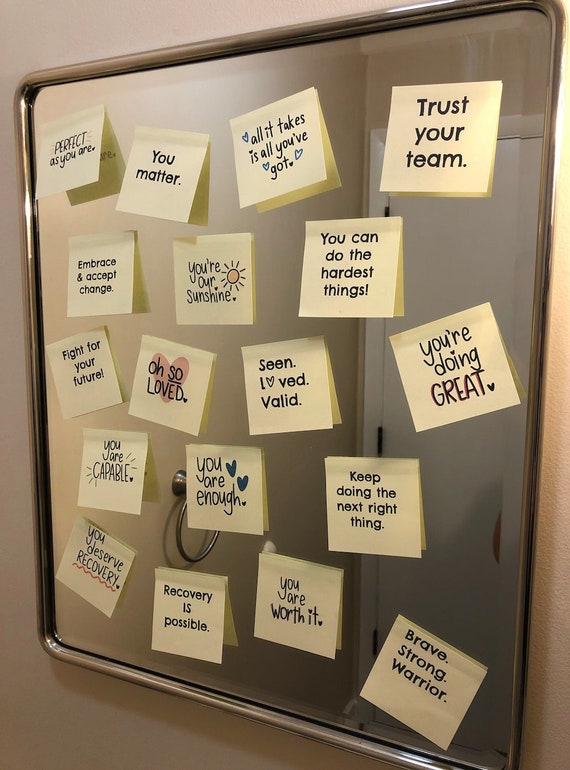 PERFECT
as you are.
You
matter.
all it takes
is all you've
got.
Trust
your
team.
Embrace
& accept
change.
you're
our
sunshine.
You can
do the
hardest
things!
Fight for
your
future!
oh so
LOVED.
Seen.
Loved.
Valid.
you're
doing
GREAT.
you
are
CAPABLE.
you
are
enough.
Keep
doing the
next right
thing.
you
deserve
RECOVERY.
Recovery
is
possible.
you
are
worth it.
Brave.
Strong.
Warrior.